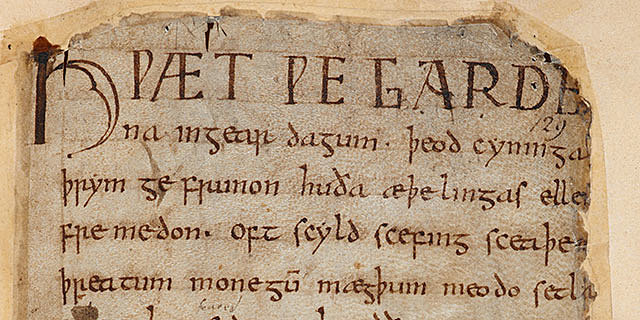 HǷÆT ǷE GARDE
na ingear dagum. þeod cyninga
þrym ge frunon huða æþelingas elle
fre medon. oft scyld scefing sceaþe
þreatum monegū mægþum meodo setla
129